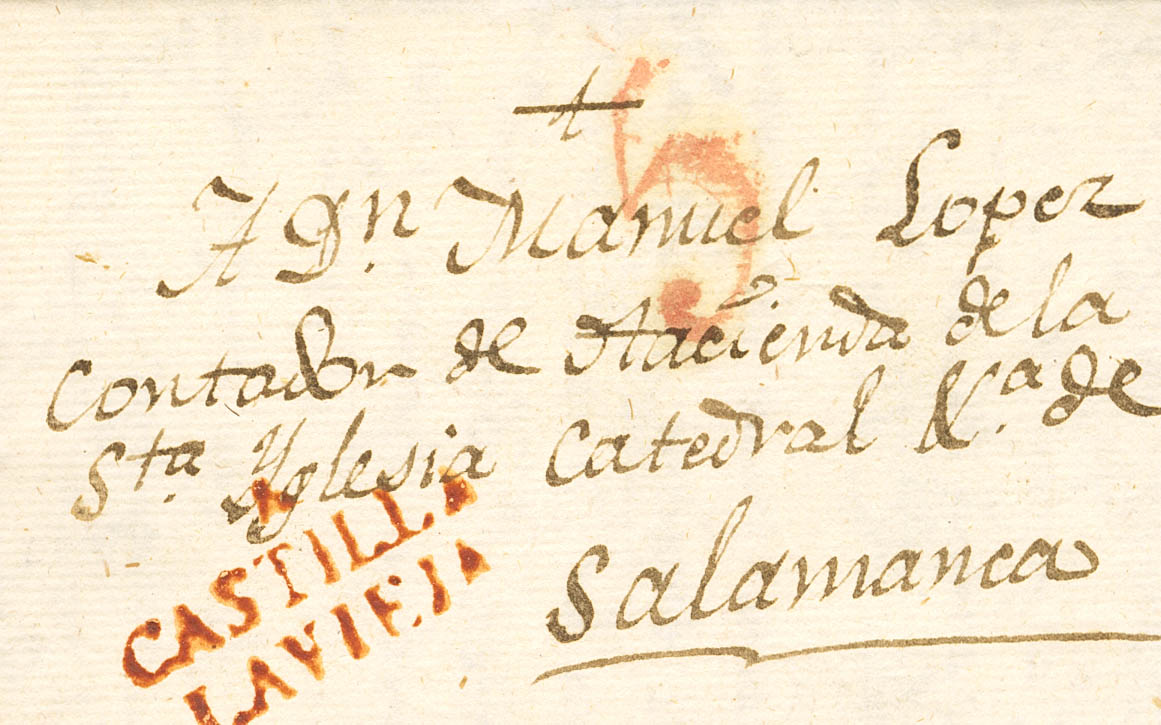 5
A Dn. Manuel Lopez
Contador de Hacienda de la
Sta. Yglesia Catedral &.a de
Salamanca
A
CASTILLA
LA VIEJA